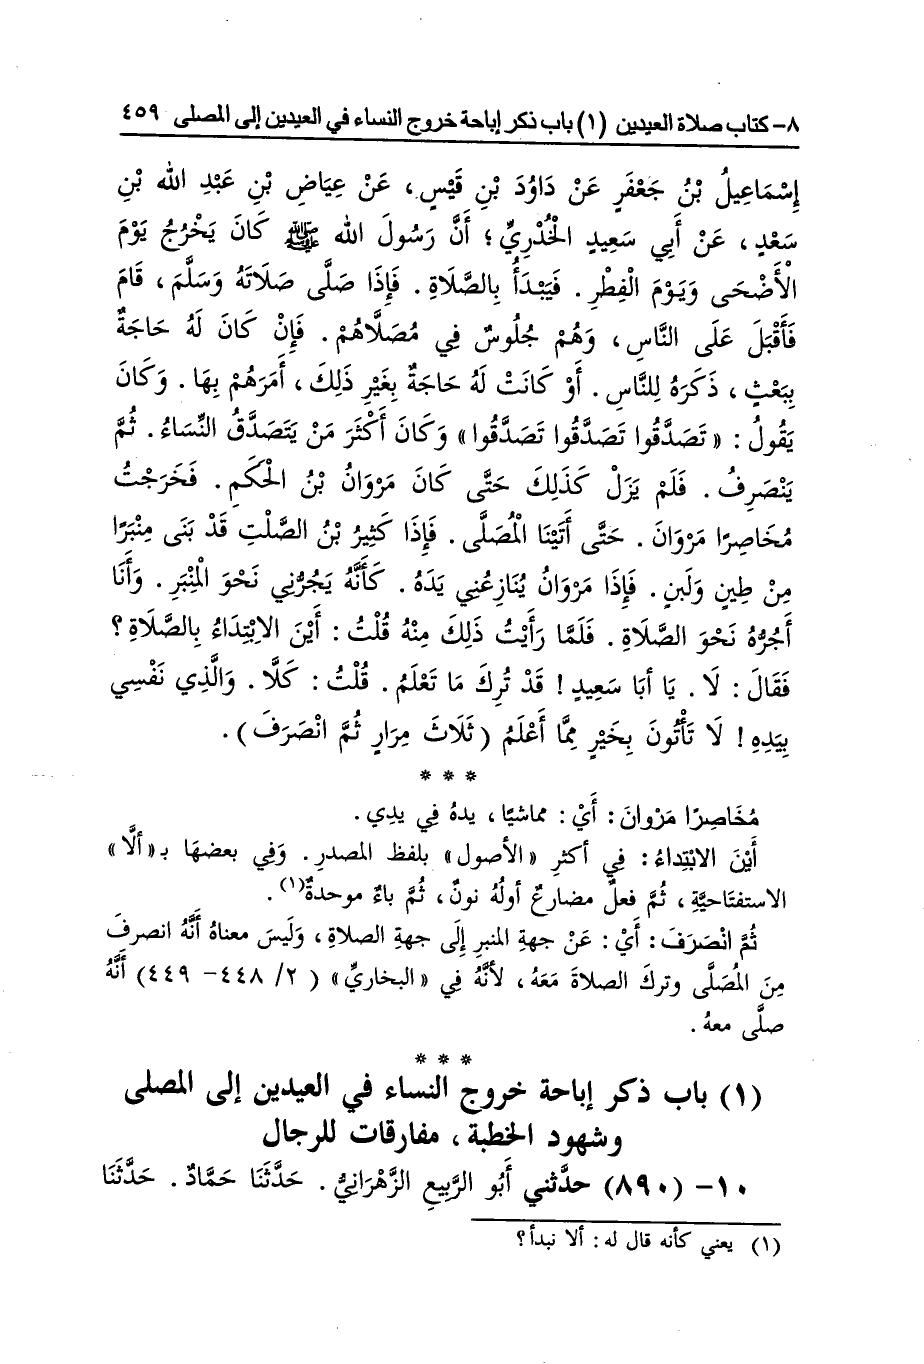 ٨- كتاب صلاة العيدين (١) باب ذكر إباحة خروج النساء في العيدين إلى المصلى ٤٥٩
إِسْمَاعِيلُ بْنُ جَعْفَرٍ عَنْ دَاوُدَ بْنِ قَيْسٍ، عَنْ عِيَاضِ بْنِ عَبْدِ الله بْنِ
سَعْدٍ، عَنْ أَبِي سَعِيدٍ الْخُدْرِيِّ؛ أَنَّ رَسُولَ الله ﷺ كَانَ يَخْرُجُ يَوْمَ
الْأَضْحَى وَيَوْمَ الْفِطْرِ. فَيَبْدَأُ بِالصَّلَاةِ. فَإِذَا صَلَّى صَلَاتَهُ وَسَلَّمَ، قَامَ
فَأَقْبَلَ عَلَى النَّاسِ، وَهُمْ جُلُوسٌ فِي مُصَلَّاهُمْ. فَإِنْ كَانَ لَهُ حَاجَةٌ
بِبَعْثٍ، ذَكَرَهُ لِلنَّاسِ. أَوْ كَانَتْ لَهُ حَاجَةٌ بِغَيْرِ ذَلِكَ، أَمَرَهُمْ بِهَا. وَكَانَ
يَقُولُ: «تَصَدَّقُوا تَصَدَّقُوا تَصَدَّقُوا» وَكَانَ أَكْثَرَ مَنْ يَتَصَدَّقُ النِّسَاءُ. ثُمَّ
يَنْصَرِفُ. فَلَمْ يَزَلْ كَذَلِكَ حَتَّى كَانَ مَرْوَانُ بْنُ الْحَكَمِ. فَخَرَجْتُ
مُخَاصِرًا مَرْوَانَ. حَتَّى أَتَيْنَا الْمُصَلَّى. فَإِذَا كَثِيرُ بْنُ الصَّلْتِ قَدْ بَنَى مِنْبَرًا
مِنْ طِينٍ وَلَبِنٍ. فَإِذَا مَرْوَانُ يُنَازِعُنِي يَدَهُ. كَأَنَّهُ يَجُرُّنِي نَحْوَ الْمِنْبَرِ. وَأَنَا
أَجُرُّهُ نَحْوَ الصَّلَاةِ. فَلَمَّا رَأَيْتُ ذَلِكَ مِنْهُ قُلْتُ: أَيْنَ الاِبْتِدَاءُ بِالصَّلَاةِ؟
فَقَالَ: لَا. يَا أَبَا سَعِيدٍ! قَدْ تُرِكَ مَا تَعْلَمُ. قُلْتُ: كَلَّا. وَالَّذِي نَفْسِي
بِيَدِهِ! لَا تَأْتُونَ بِخَيْرٍ مِمَّا أَعْلَمُ (ثَلَاثَ مِرَارٍ ثُمَّ انْصَرَفَ).
* * *
مُخَاصِرًا مَرْوَانَ: أَيْ: مماشيًا، يدهُ فِي يدِي.
أَيْنَ الابْتِدَاءُ: فِي أكثرِ «الأصول» بلفظ المصدر. وَفِي بعضهَا بـ«ألَّا»
الاستفتَاحيَّةِ، ثُمَّ فعلٌ مضارعٌ أولُهُ نونٌ، ثُمَّ باءٌ موحدةٌ(١).
ثُمَّ انْصَرَفَ: أَيْ: عَنْ جهةِ المنبرِ إلَى جهةِ الصلاةِ، وَلَيسَ معناهُ أنَّهُ انصرفَ
مِنَ المُصَلَّى وتركَ الصلاةَ مَعَهُ، لأنَّهُ فِي «البخاريِّ» (٢/ ٤٤٨- ٤٤٩) أنَّهُ
صلَّى معهُ.
* * *
(١) باب ذكر إباحة خروج النساء في العيدين إلى المصلى
وشهود الخطبة، مفارقات للرجال
١٠- (٨٩٠) حدَّثني أَبُو الرَّبِيعِ الزَّهْرَانِيُّ. حَدَّثَنَا حَمَّادٌ. حَدَّثَنَا
(١) يعني كأنه قال له: ألا نبدأ؟